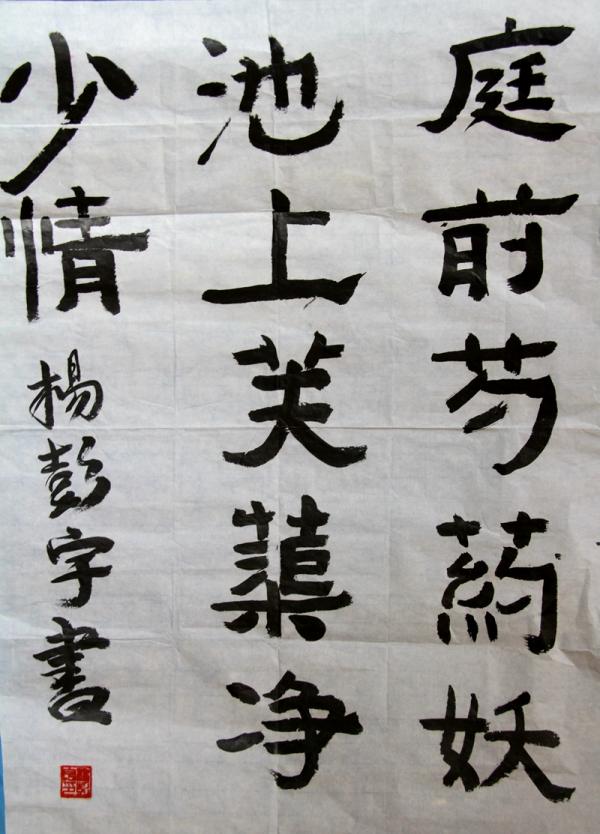 庭前芍葯妖
池上芙蕖净
少情 楊彭宇書